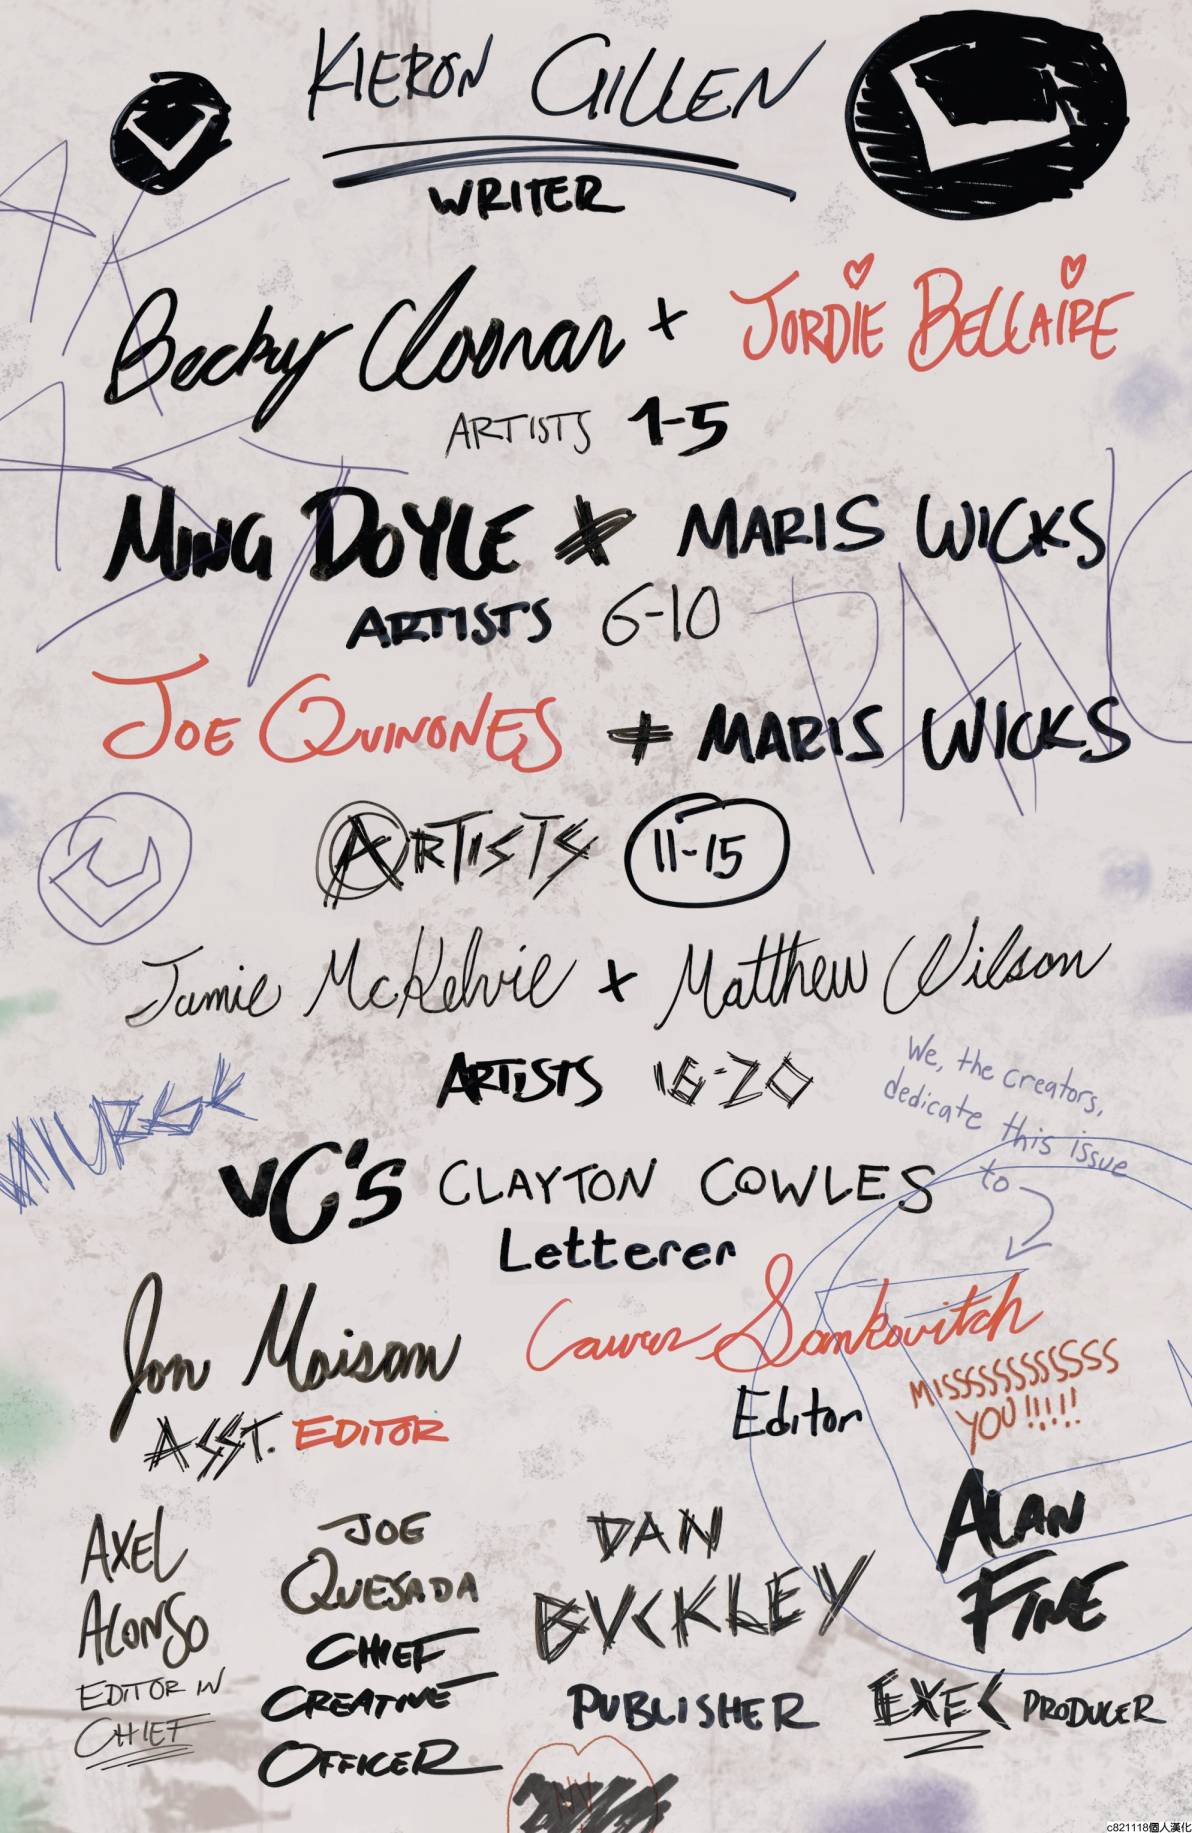 KIERON GILLEN
WRITER
Becky Cloonan + JORDIE BELLAIRE
ARTISTS 1-5
MING DOYLE + MARIS WICKS
ARTISTS 6-10
JOE QUINONES + MARIS WICKS
ARTISTS 11-15
Jamie McKelvie + Matthew Wilson
ARTISTS 16-20
We, the creators,
dedicate this issue
to
VC'S CLAYTON COWLES
Letterer
Jon Moisan
ASST. EDITOR
Lauren Sankovitch
Editor
MISSSSSSSSSSSS
YOU!!!!!
AXEL
ALONSO
EDITOR IN
CHIEF
JOE
QUESADA
CHIEF
CREATIVE
OFFICER
DAN
BUCKLEY
PUBLISHER
ALAN
FINE
EXEC PRODUCER
c821118個人漢化